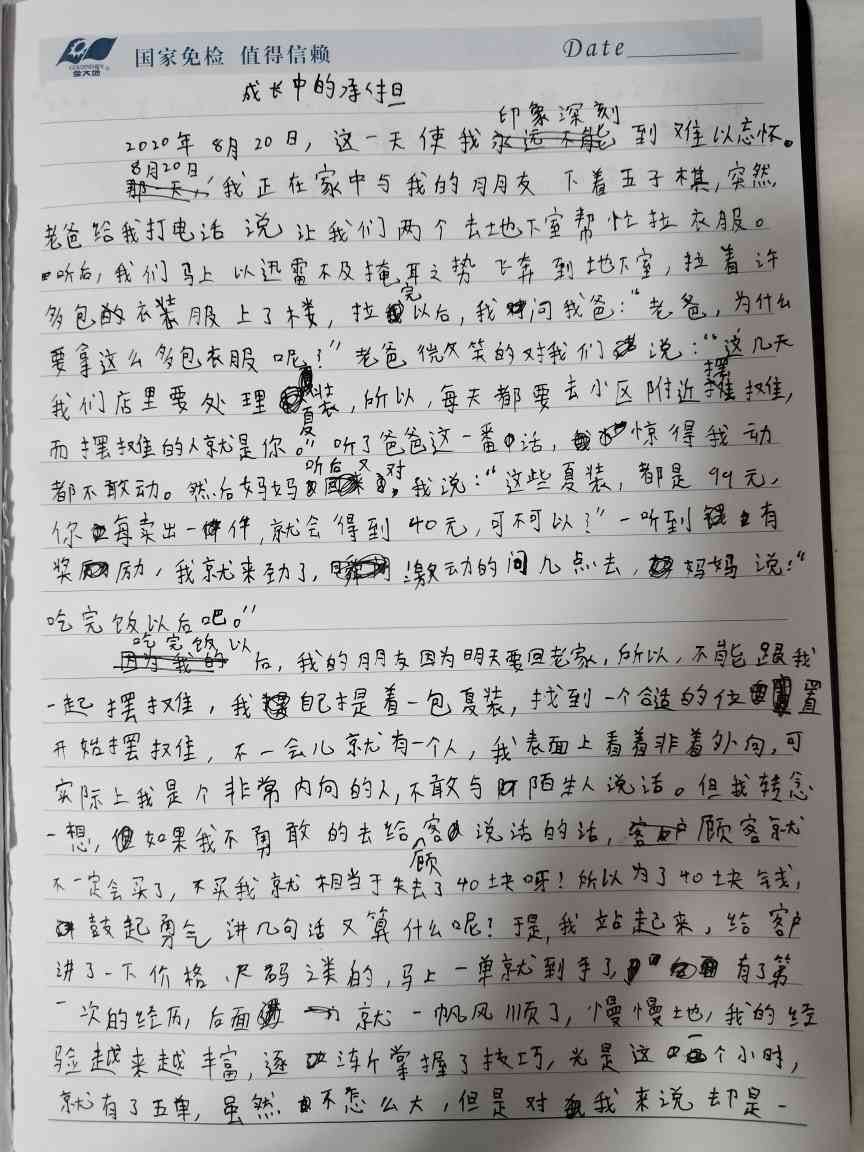 金大地
国家免检 值得信赖
Date
成长中的承担
印象深刻
2020年8月20日，这一天使我永远不能到难以忘怀。
8月20日
那一天，我正在家中与我的朋友下着五子棋，突然
老爸给我打电话说让我们两个去地下室帮忙拉衣服。
听后，我们马上以迅雷不及掩耳之势飞奔到地下室，拉着许
多包的衣装服上了楼，拉完以后，我问我爸：“老爸，为什么
要拿这么多包衣服呢？”老爸微笑的对我们说：“这几天
我们店里要处理夏装，所以，每天都要去小区附近摆摊，
而摆摊的人就是你。”听了爸爸这一番话，惊得我动
都不敢动。然后妈妈听后又对我说：“这些夏装，都是99元，
你每卖出一件，就会得到40元，可不可以？”一听到有
奖励，我就来劲了，激动的问几点去，妈妈说：“
吃完饭以后吧。”
吃完饭以
因为我的后，我的朋友因为明天要回老家，所以，不能跟我
一起摆摊，我自己提着一包夏装，找到一个合适的位置
开始摆摊，不一会儿就有一个人，我表面上看着非着外向，可
实际上我是个非常内向的人，不敢与陌生人说话。但我转念
一想，如果我不勇敢的去给顾客说话的话，顾客就
不一定会买了，不买我就相当于失去了40块呀！所以为了40块钱，
鼓起勇气讲几句话又算什么呢？于是，我站起来，给客户
讲了一下价格、尺码之类的，马上一单就到手了，有了第
一次的经历，后面就一帆风顺了，慢慢地，我的经
验越来越丰富，逐渐掌握了技巧，光是这一个小时，
就有了五单，虽然不怎么大，但是对我来说却是一